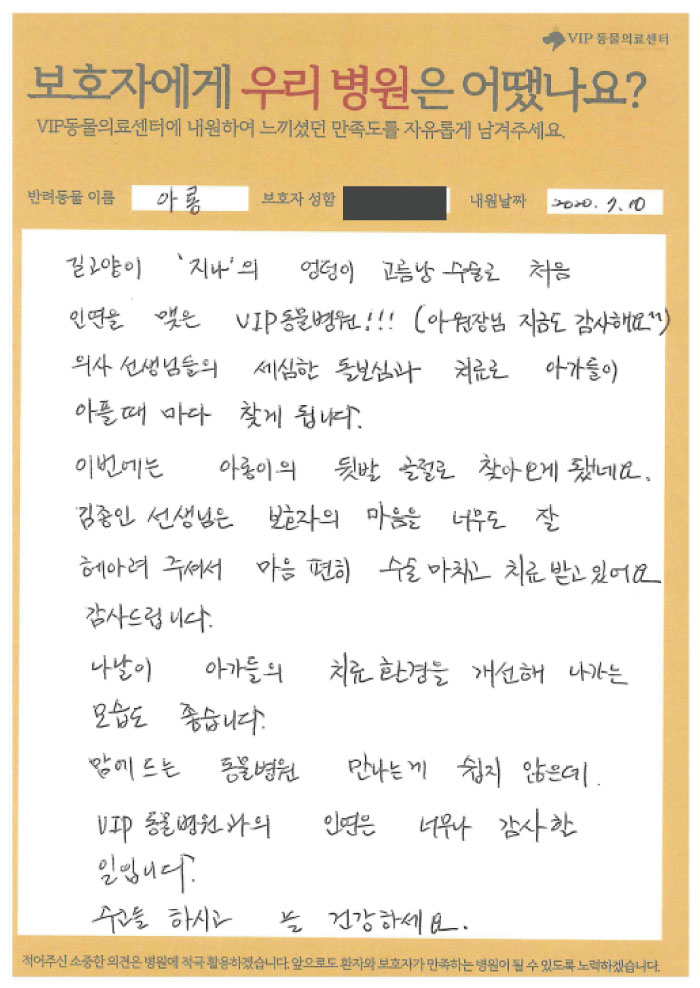 VIP 동물의료센터
보호자에게 우리 병원은 어땠나요?
VIP동물의료센터에 내원하여 느끼셨던 만족도를 자유롭게 남겨주세요.
반려동물 이름 아롱 보호자 성함 내원날짜 2020. 7. 10
길고양이 '지나'의 엉덩이 고름낭 수술로 처음
인연을 맺은 VIP동물병원!!! (아원장님 지금도 감사해요^^)
의사 선생님들의 세심한 돌보심과 치료로 아가들이
아플때 마다 찾게 됩니다.
이번에는 아롱이의 뒷발 골절로 찾아오게 됐네요.
김종인 선생님은 보호자의 마음을 너무도 잘
헤아려 주셔서 마음 편히 수술 마치고 치료 받고 있어요
감사드립니다.
나날이 아가들의 치료환경을 개선해 나가는
모습도 좋습니다.
맘에 드는 동물병원 만나는게 쉽지 않은데.
VIP 동물병원과의 인연은 너무나 감사한
일입니다.
수고들 하시고 늘 건강하세요.
적어주신 소중한 의견은 병원에 적극 활용하겠습니다. 앞으로도 환자와 보호자가 만족하는 병원이 될 수 있도록 노력하겠습니다.